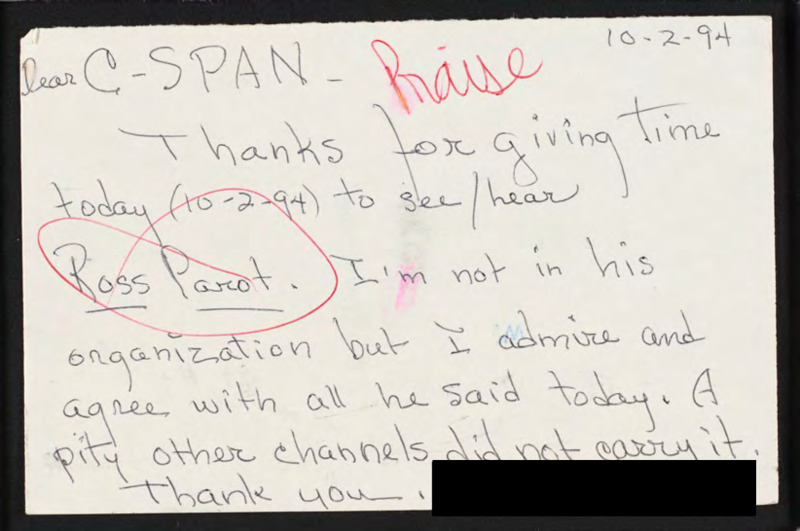 10-2-94
Dear C-SPAN - Praise
Thanks for giving time
today (10-2-94) to see/hear
Ross Parot. I'm not in his
organization but I admire and
agree with all he said today. A
pity other channels did not carry it.
Thank you.